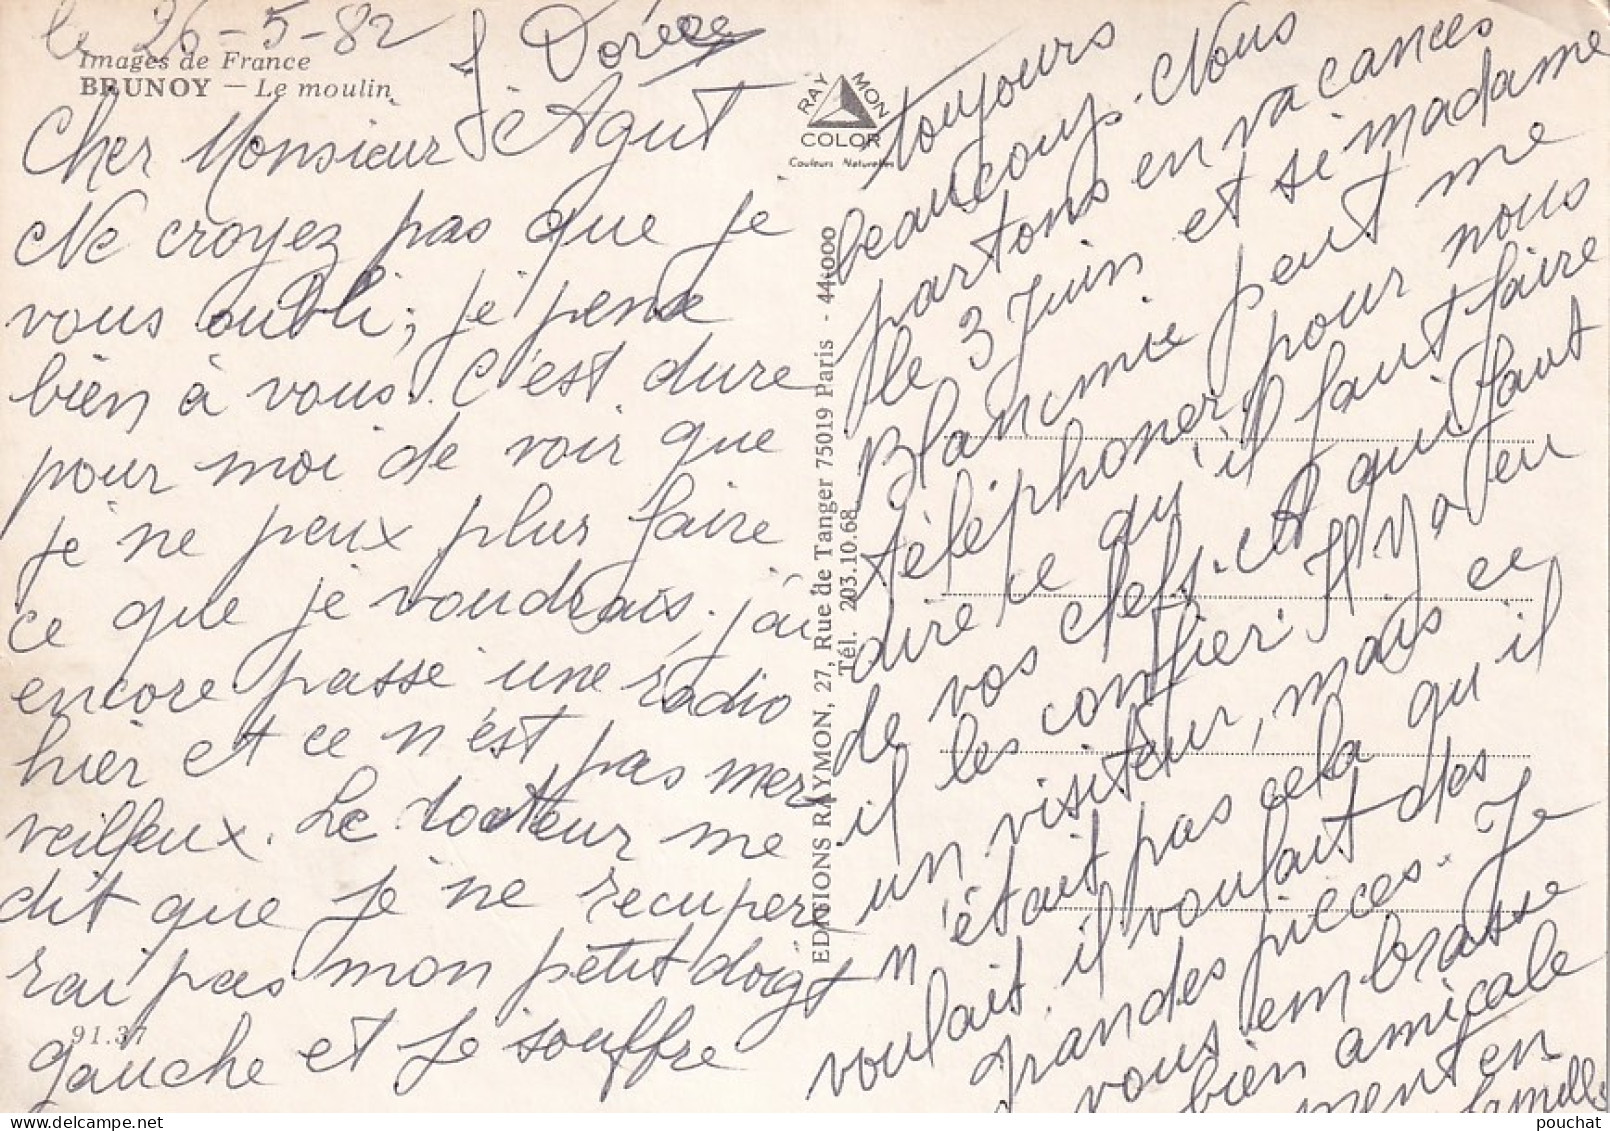 le 26-5-82
Images de France
BRUNOY — Le moulin
Cher Monsieur Agut
Ne croyez pas que je
vous oubli, je pense
bien à vous. C'est dure
pour moi de voir que
je ne peux plus faire
ce que je voudrais, j'ai
encore passé une radio
hier et ce n'est pas mer
veilleux. Le docteur me
dit que je ne recupere
rai pas mon petit doigt
gauche et je souffre
91.37
RAYMON
COLOR
Couleurs Naturelles
EDITIONS RAYMON, 27, Rue de Tanger 75019 Paris - 44.000
Tél. 203.10.68
toujours
beaucoup. Nous
partons en vacances
le 3 Juin et si madame
Blancmie peut me
téléphoner pour nous
dire ce qu'il faut faire
de vos clefs. et qui faut
il les confier. Il y a eu
un visiteur, mais ce
n'était pas cela qu'il
voulait, il voulait des
grandes pièces. Je
vous embrasse
bien amicale
ment en
famille